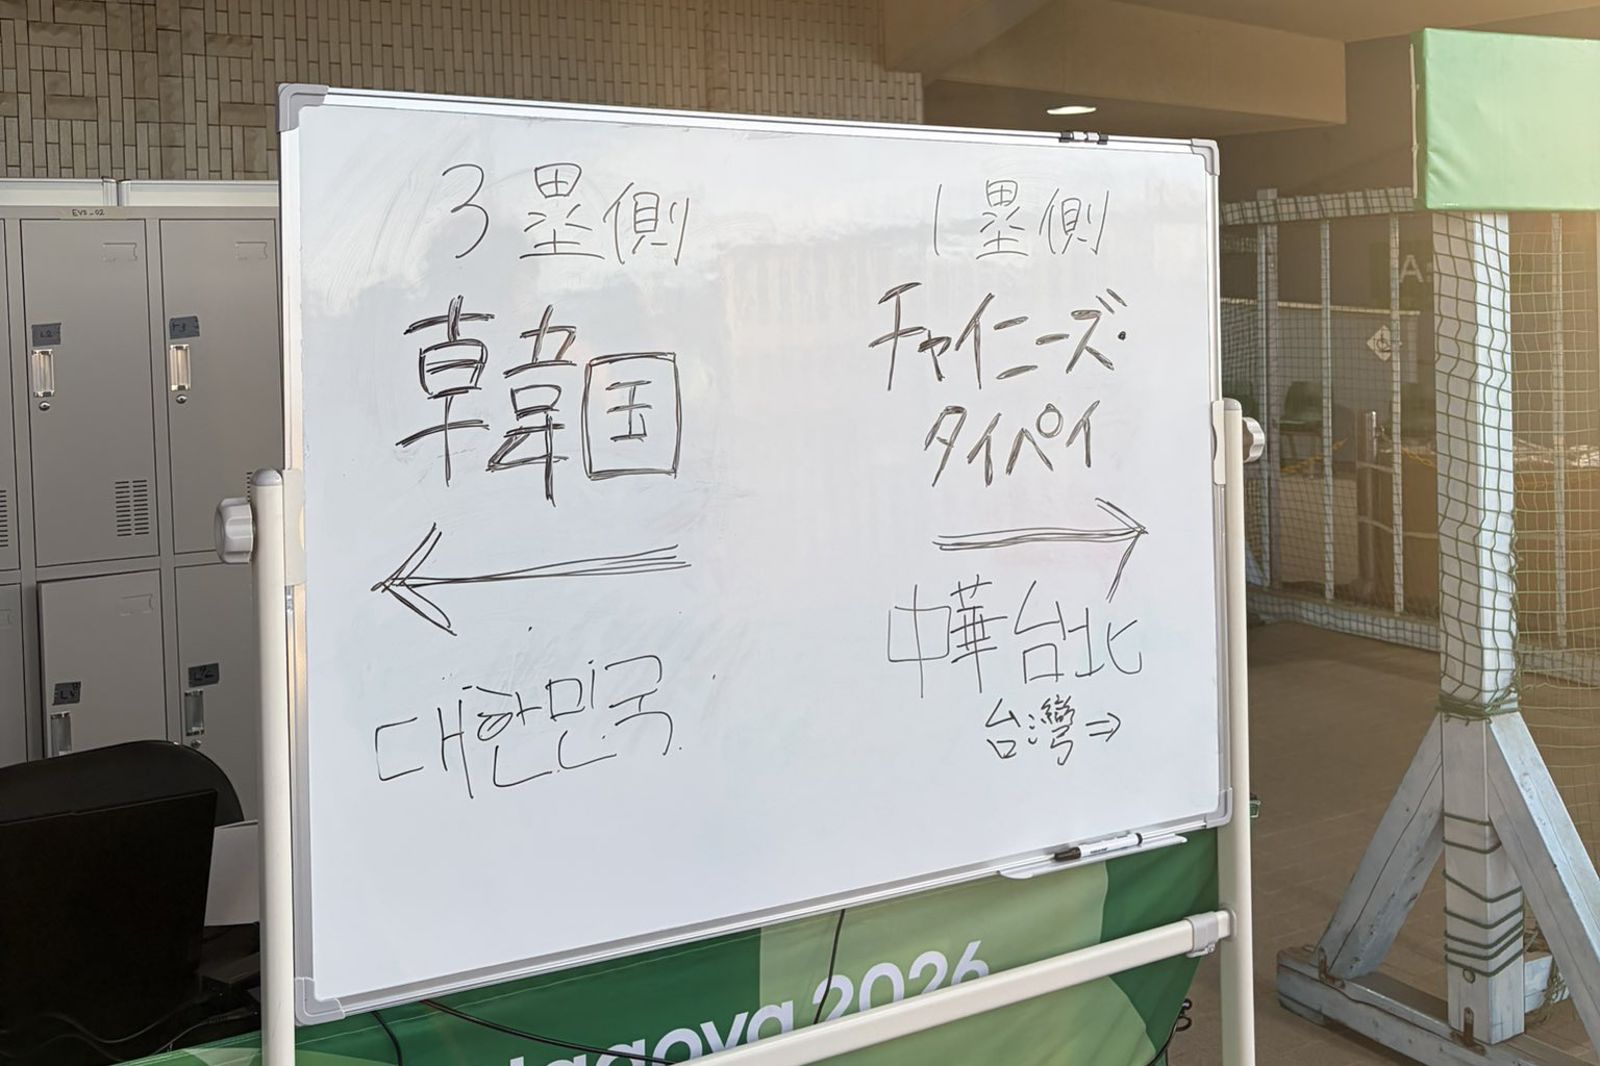 3塁側
韓国
←
대한민국
1塁側
チャイニーズ・
タイペイ
→
中華台北
台湾⇒
Nagoya 2026
EVS-02
L2